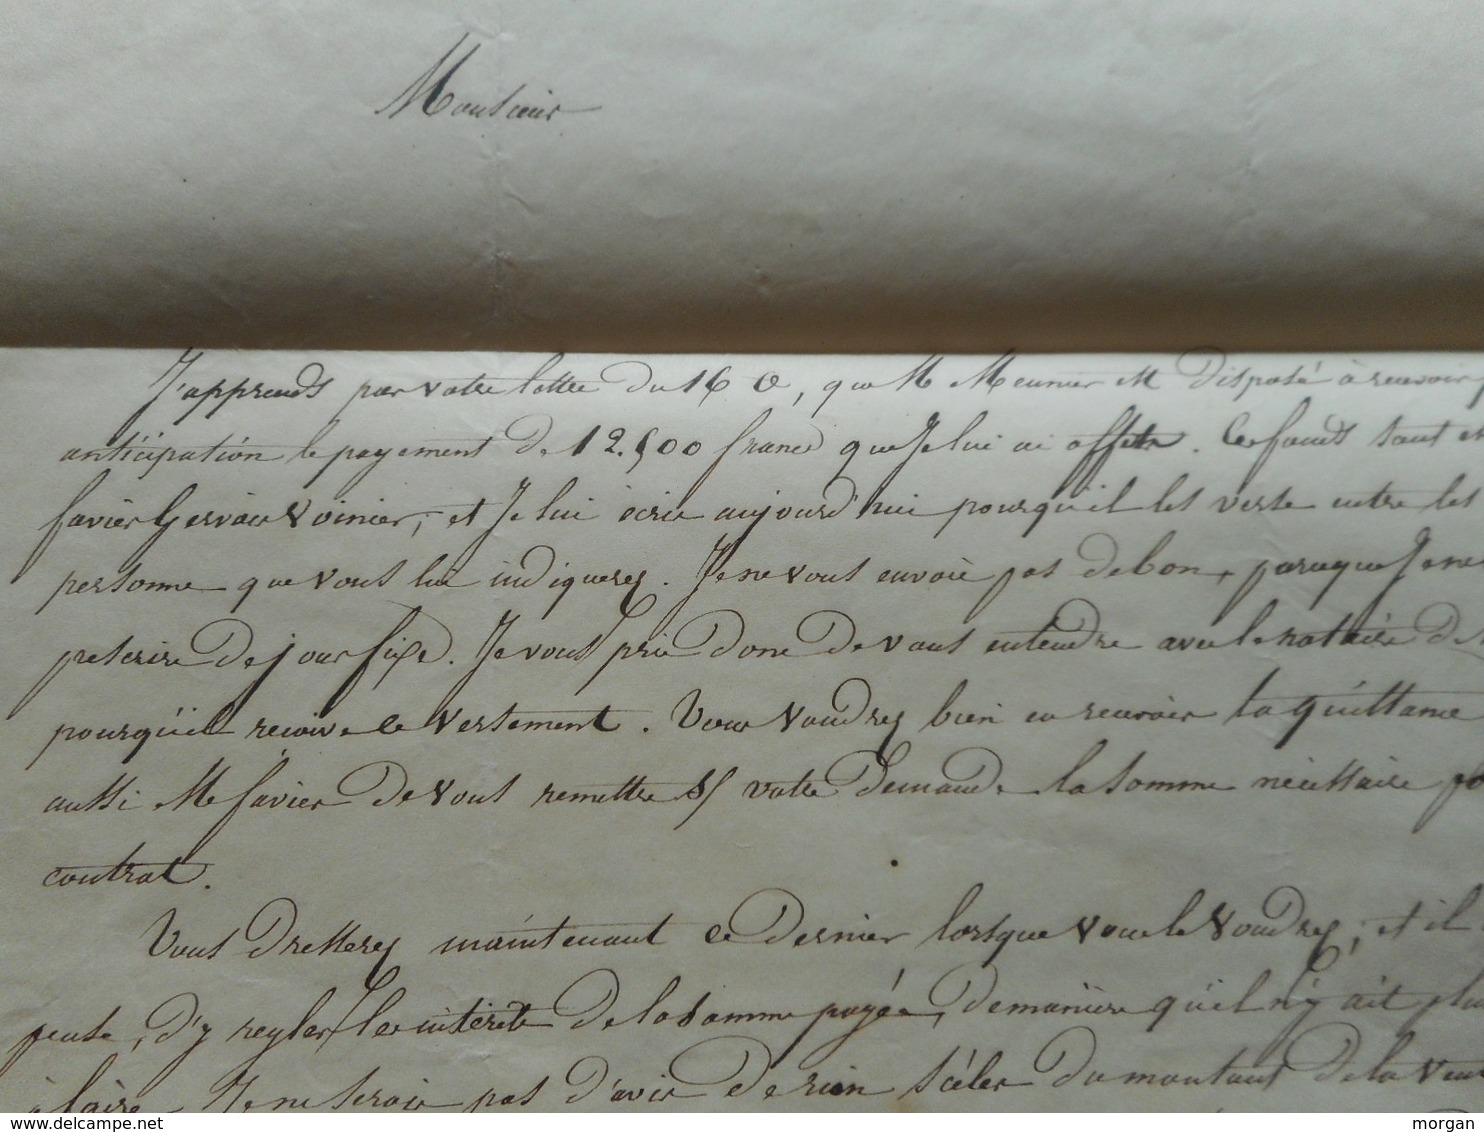 Monsieur
J'apprends par votre lettre du 16 ct, que M Meunier est disposé à recevoir
anticipation le payement de 12.500 francs que je lui ai offerts. Ces fonds sont
favier Gervais Voinier, et Je lui écris aujourd'hui pourqu'il les verse entre les
personne que vous lui indiquerez. Je ne vous envoie pas de bon, parceque Je ne
prescrire de jour fixe. Je vous prie donc de vous entendre avec le notaire de
pourqu'il recoive ce versement. Vous voudrez bien en recevoir la quittance
aussi Me favier de vous remettre s/ votre demande la somme nécessaire
contrat.
Vous dresserez maintenant ce dernier lorsque vous le voudrez, et il
peuse, d'y regler les intérêts de la somme payée, de manière qu'il n'y ait plus
à faire. Je ne serais pas d'avis de rien du montant de la